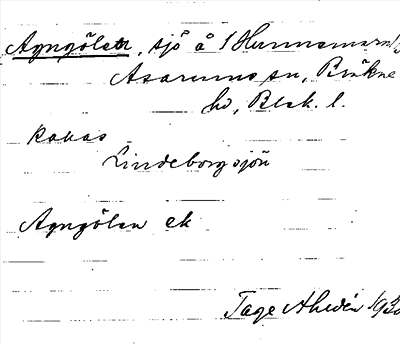 Agngölen, sjö å 1 Hunnemara
Asarums sn, Bräkne
hd, Blek. l.
kallas
Lindeborgsjön
Agngölen ek
Tage Ahldén 1930